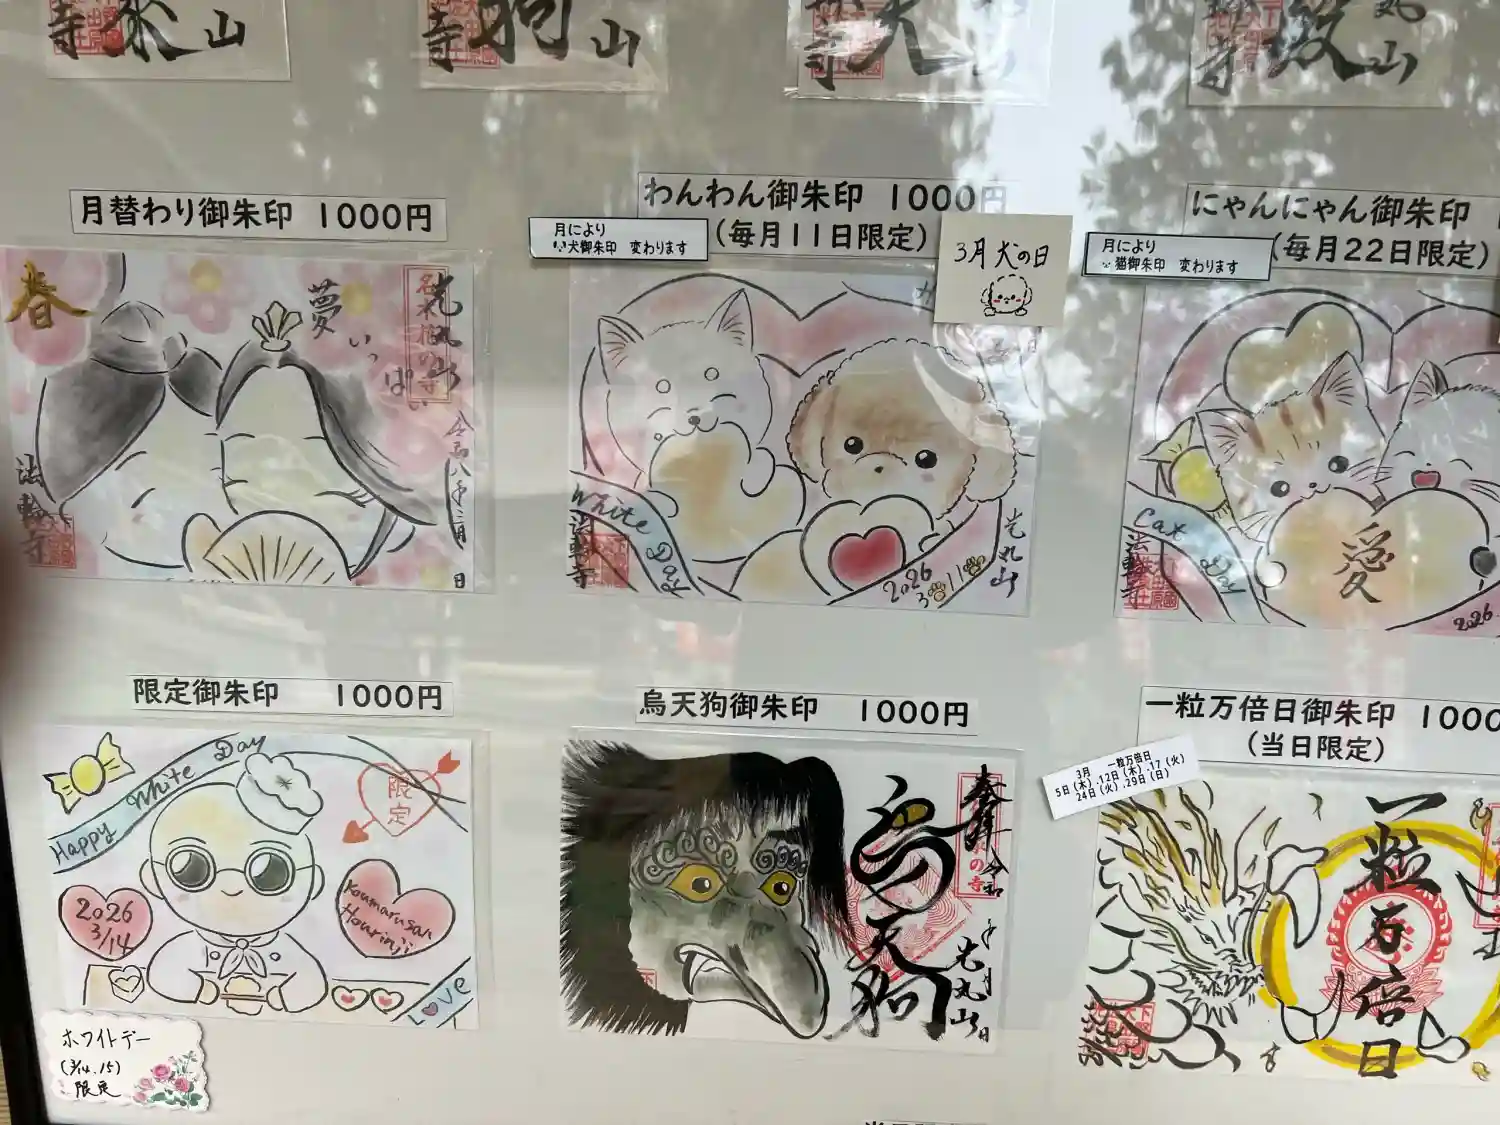 寺 山
寺 狗 山
寺 天
寺 山
月替わり御朱印 1000円
春
夢
いっぱい
光丸山
令和八年三月 日
法輪寺
わんわん御朱印 1000円
(毎月11日限定)
月により
犬御朱印 変わります
3月 犬の日
White Day
法輪寺
光丸山
2026
3 11
にゃんにゃん御朱印
(毎月22日限定)
月により
猫御朱印 変わります
Cat Day
愛
法輪寺
2026.
限定御朱印 1000円
Happy White Day
限定
2026
3/14
Koumarusan
Hourinji
LOVE
ホワイトデー
(3/14.15)
限定
烏天狗御朱印 1000円
奉拝
令和 年 月 日
烏天狗
光丸山
一粒万倍日御朱印 1000
(当日限定)
3月 一粒万倍日
5日(木).12日(木).17(火)
24日(火).29日(日)
一粒万倍日